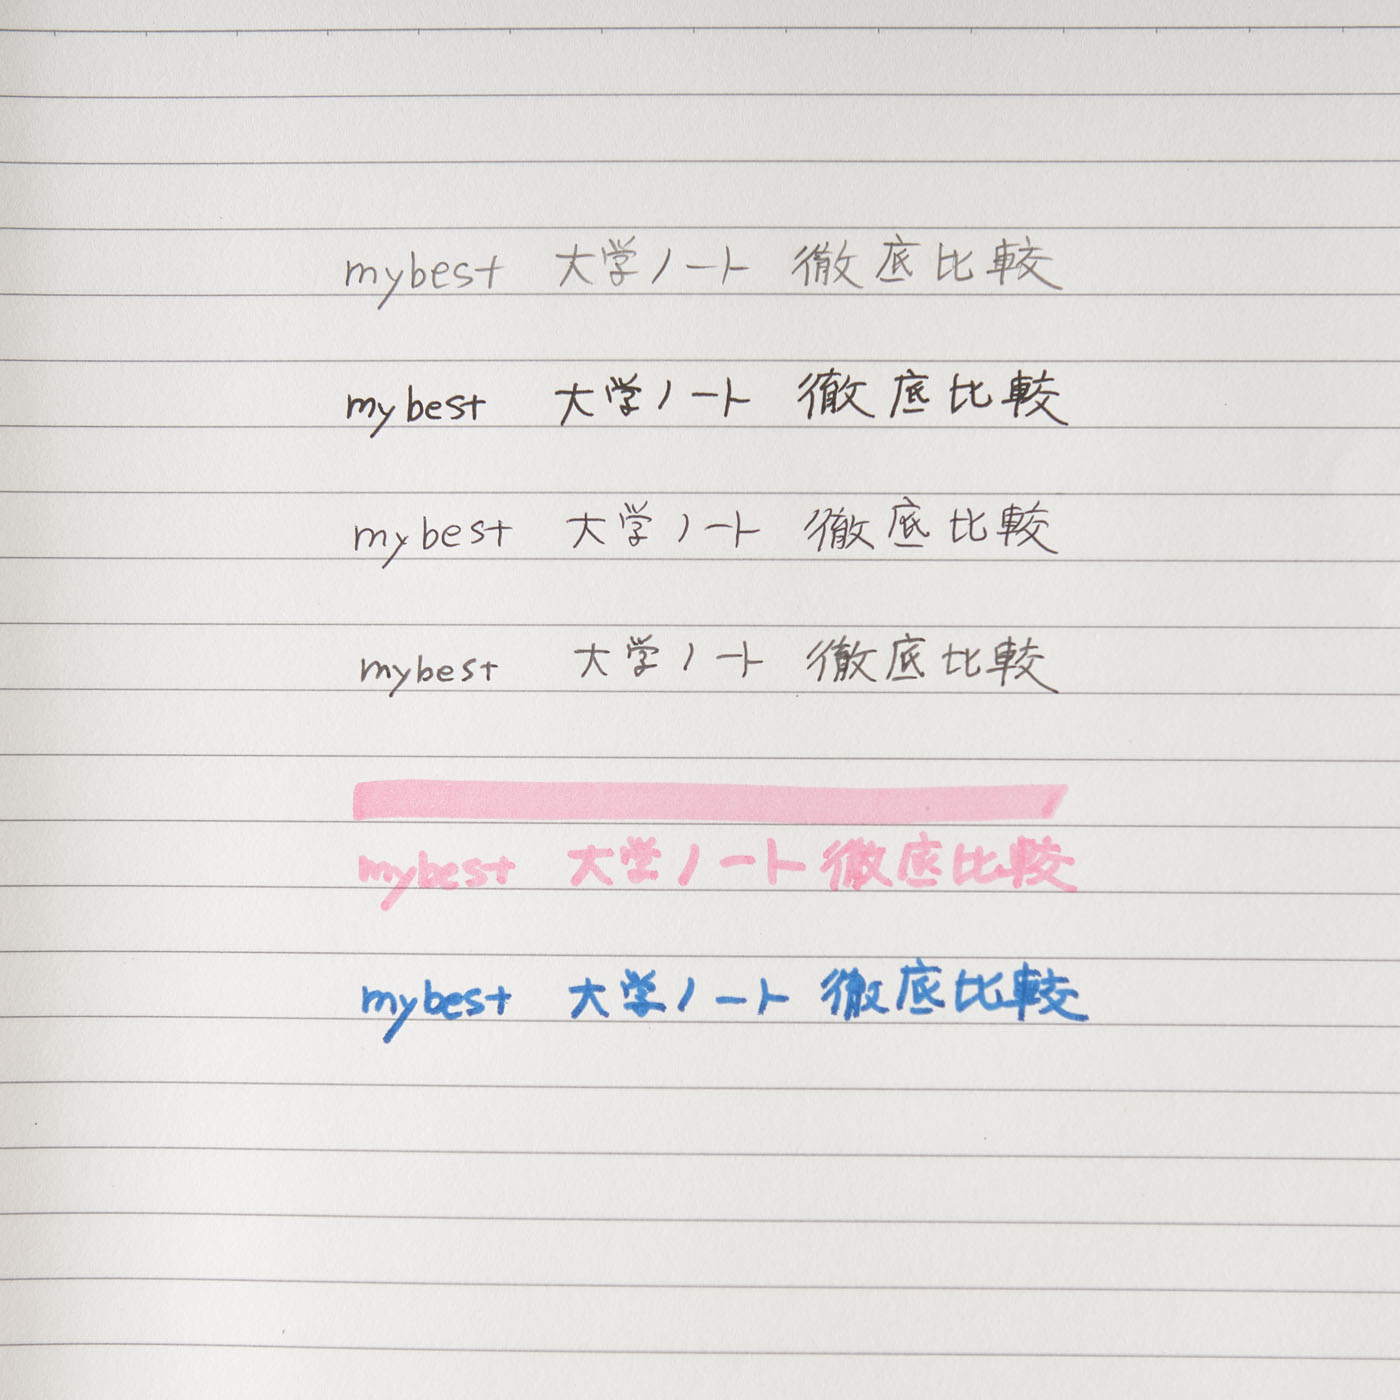 mybest 大学ノート 徹底比較
mybest 大学ノート 徹底比較
mybest 大学ノート 徹底比較
mybest 大学ノート 徹底比較
mybest 大学ノート 徹底比較
mybest 大学ノート 徹底比較